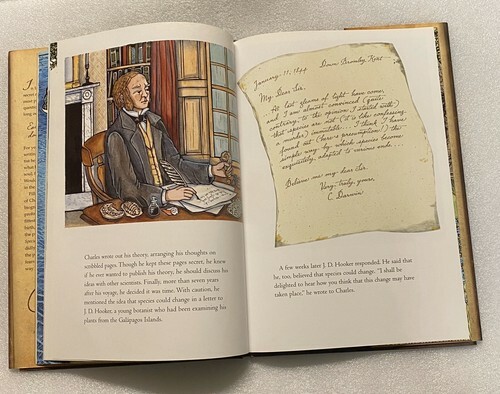 Charles wrote out his theory, arranging his thoughts on
scribbled pages. Though he kept these pages secret, he knew
if he ever wanted to publish his theory, he should discuss his
ideas with other scientists. Finally, more than seven years
after his voyage, he decided it was time. With caution, he
mentioned the idea that species could change in a letter to
J. D. Hooker, a young botanist who had been examining his
plants from the Galápagos Islands.
January 11, 1844 Down Bromley, Kent
My Dear Sir,
At last gleams of light have come,
and I am almost convinced (quite
contrary to the opinion I started with)
that species are not (it is like confessing
a murder) immutable... I think I have
found out (here's presumption!) the
simple way by which species become
exquisitely adapted to various ends...
Believe me my dear Sir
Very truly yours,
C. Darwin
A few weeks later J. D. Hooker responded. He said that
he, too, believed that species could change. "I shall be
delighted to hear how you think that this change may have
taken place," he wrote to Charles.